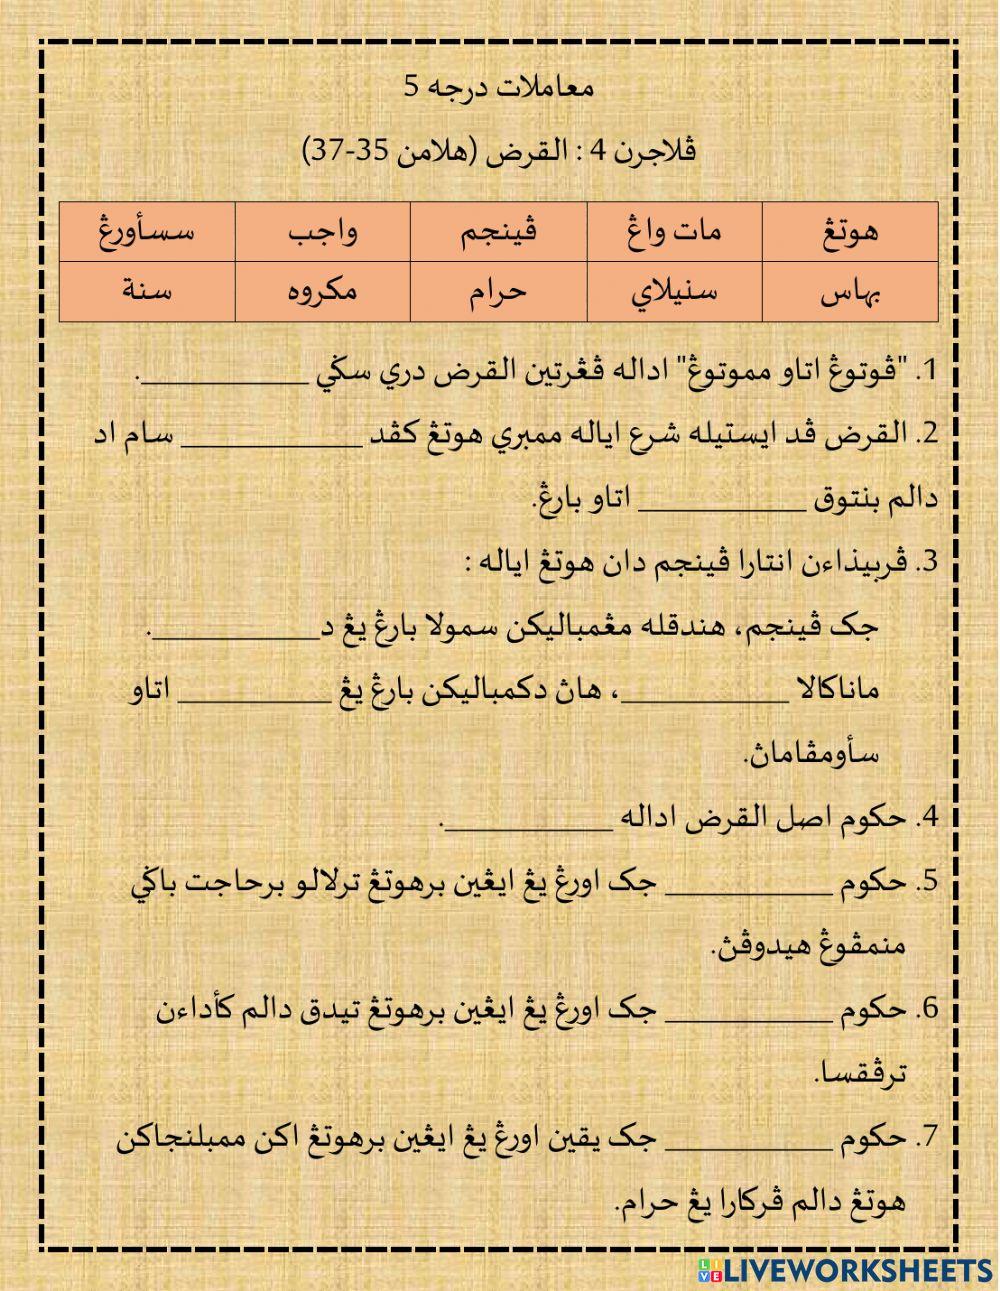 معاملات درجه 5
ڤلاجرن 4 : القرض (هلامن 35-37)
هوتڠ مات واڠ ڤينجم واجب سسأورڠ
بهاس سنيلاي حرام مکروه سنة
1. "ڤوتوڠ اتاو مموتوڠ" اداله ڤڠرتين القرض دري سݢي ___________.
2. القرض ڤد ايستيله شرع اياله ممبري هوتڠ کڤد ____________ سام اد
دالم بنتوق ___________ اتاو بارڠ.
3. ڤربيذاءن انتارا ڤينجم دان هوتڠ اياله :
جک ڤينجم، هندقله مڠمباليکن سمولا بارڠ يڠ د___________.
ماناکالا ___________، هاڽ دکمباليکن بارڠ يڠ __________ اتاو
سأومڤاماڽ.
4. حکوم اصل القرض اداله ___________.
5. حکوم ___________ جک اورڠ يڠ ايڠين برهوتڠ ترلالو برحاجت باݢي
منمڤوڠ هيدوڤڽ.
6. حکوم ___________ جک اورڠ يڠ ايڠين برهوتڠ تيدق دالم کأداءن
ترڤقسا.
7. حکوم ___________ جک يقين اورڠ يڠ ايڠين برهوتڠ اکن ممبلنجاکن
هوتڠ دالم ڤرکارا يڠ حرام.
LIVEWORKSHEETS